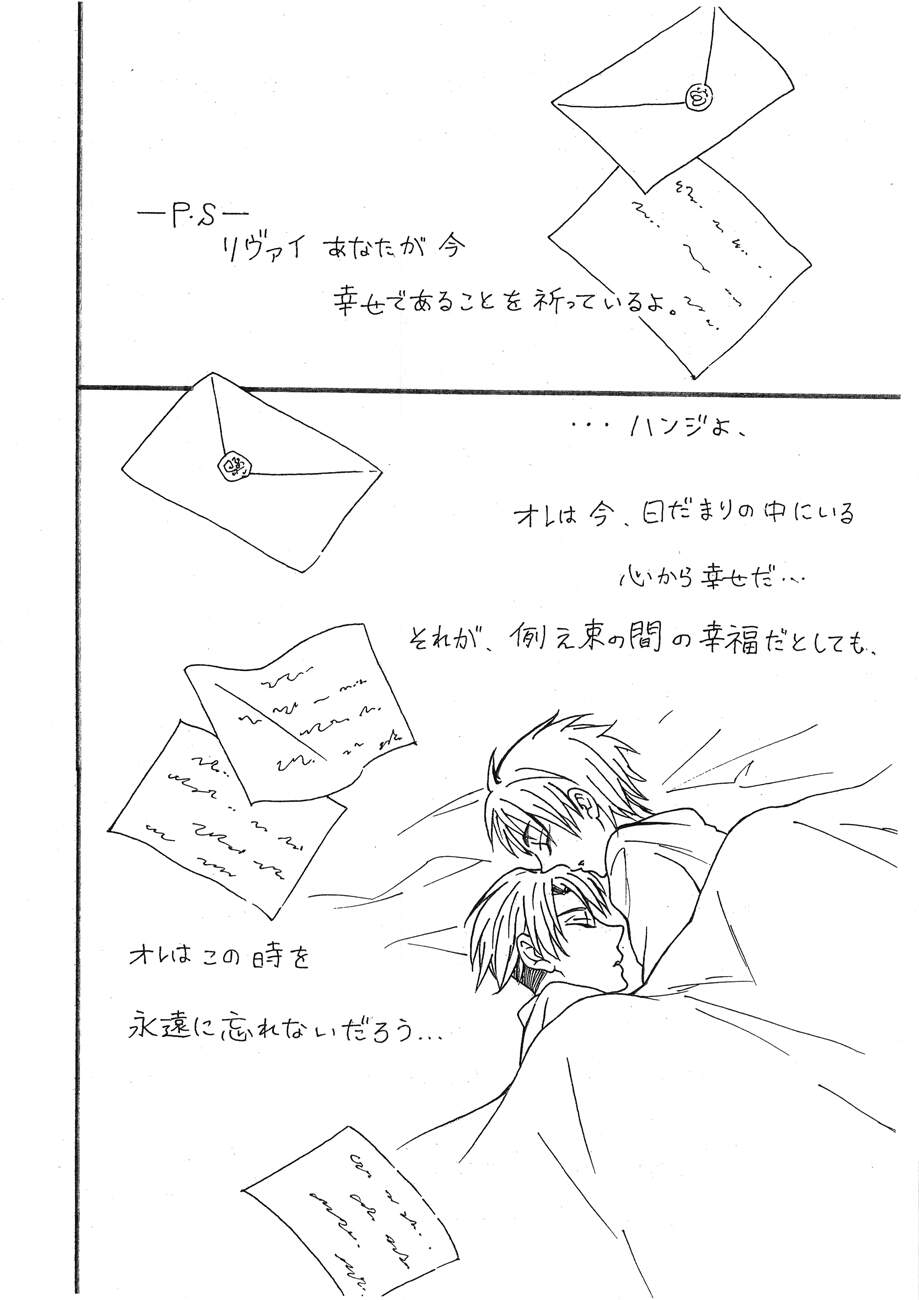 ―P.S―
リヴァイ あなたが 今
幸せであることを 祈っているよ。
・・・ ハンジよ、
オレは 今、日だまりの中にいる
心から 幸せだ・・・
それが、例え束の間の幸福だとしても、
オレは この 時を
永遠に 忘れないだろう・・・